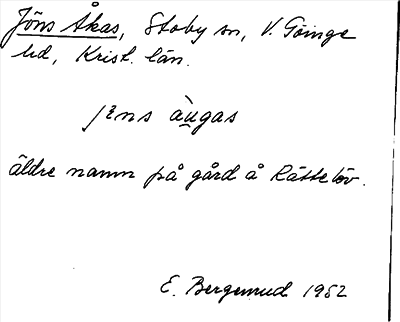 Jöns Åkas, Stoby sn, V. Göinge
hd, Krist. län.
jens àu̲gas
äldre namn på gård å Rättelöv.
E. Bergemud 1952